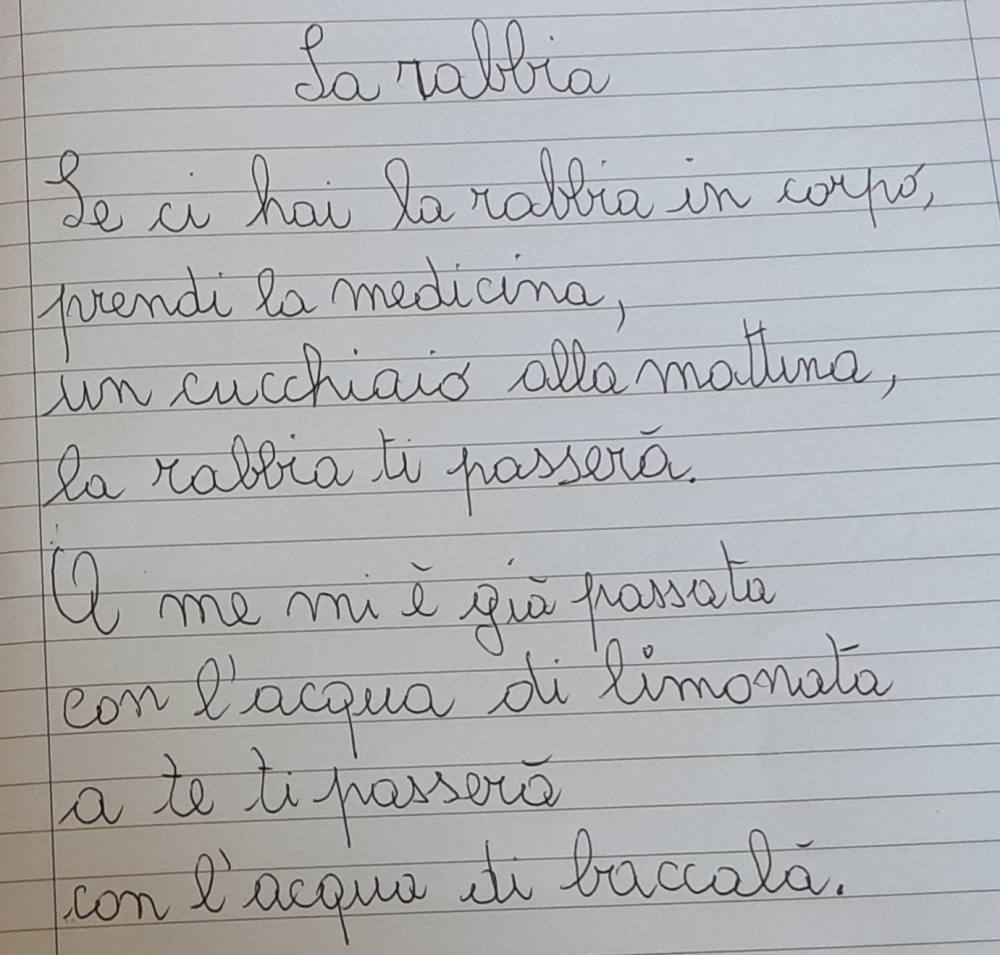 La rabbia
Se ci hai la rabbia in corpo,
prendi la medicina,
un cucchiaio alla mattina,
la rabbia ti passerà.
A me mi è già passata
con l'acqua di limonata
a te ti passerà
con l'acqua di baccalà.